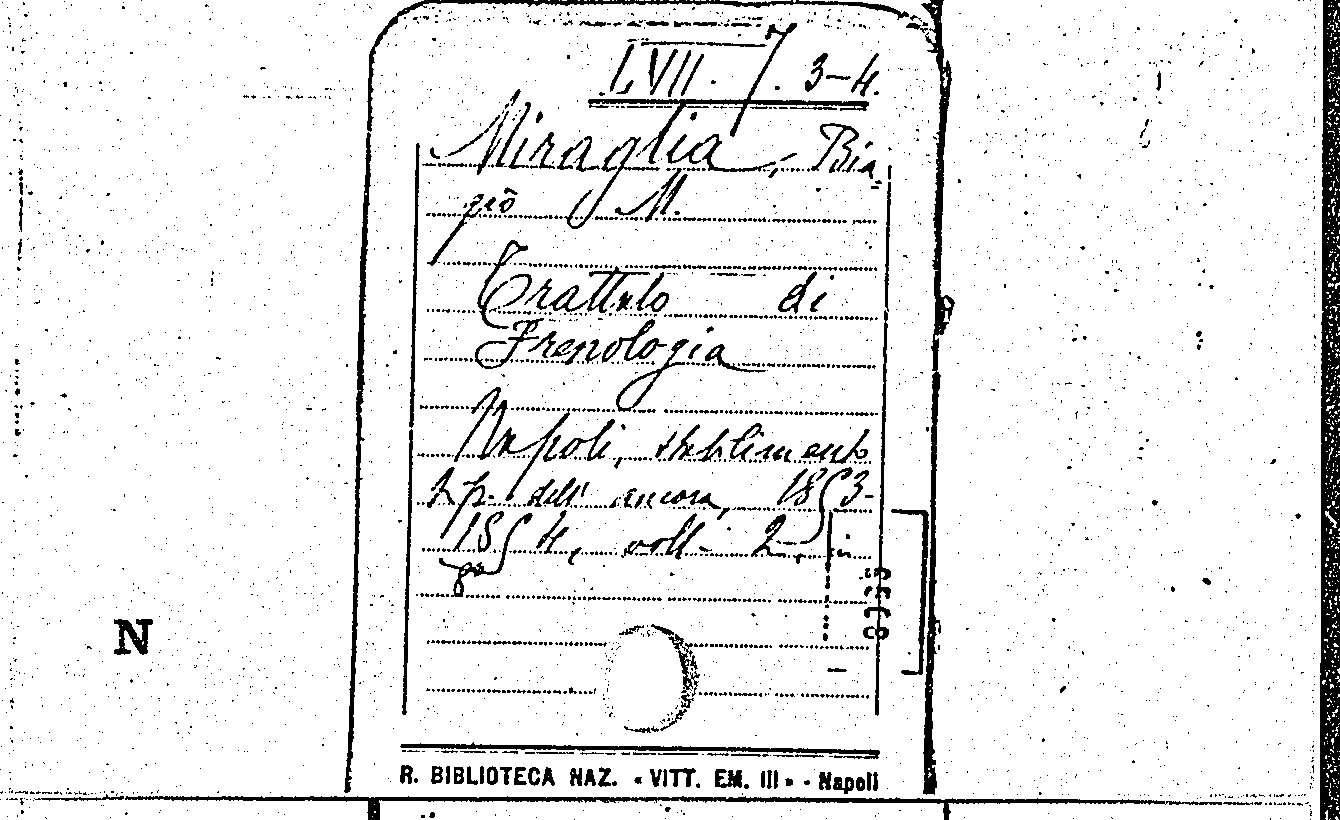 LVII. 7. 3-4.
Miraglia, Bia
gio M.
Trattato di
Frenologia
Napoli, stabilimento
tip. dell' ancora, 1853-
1854, voll. 2, in
N
R. BIBLIOTECA NAZ. « VITT. EM. III » - Napoli